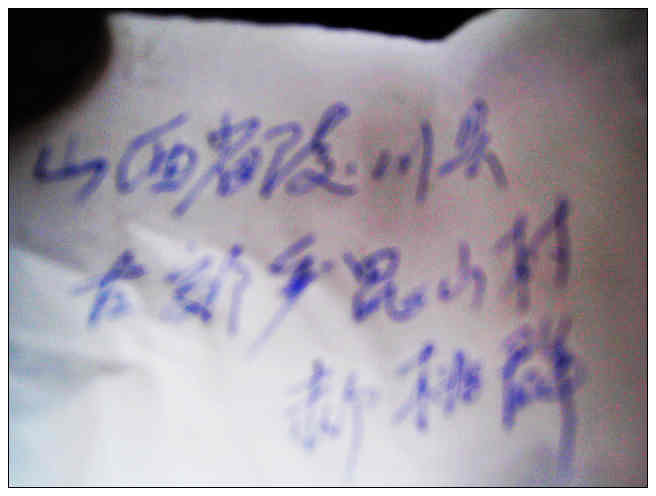 山西省陵川县
古郊乡昆山村
郝桃群